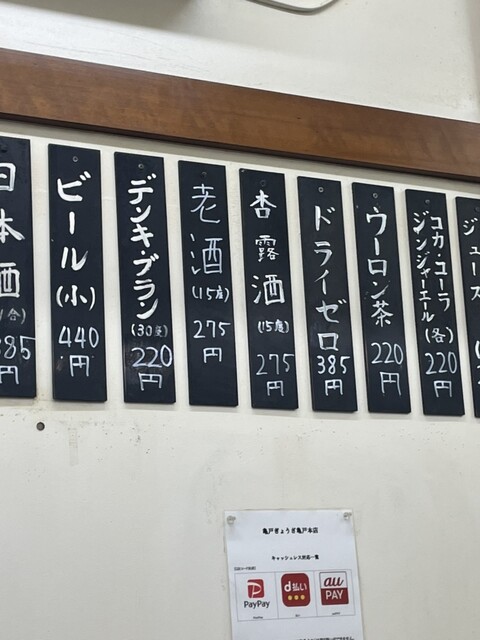 日本酒
ビール(小)
440
円
デンキ・ブラン
(30度)
220
円
老酒
(15度)
275
円
杏露酒
(15度)
275
円
ドライゼロ
385
円
ウーロン茶
220
円
コカ・コーラ
ジンジャーエール(各)
220
円
ジュース
亀戸ぎょうざ亀戸本店
キャッシュレス対応一覧
PayPay
d払い
au
PAY